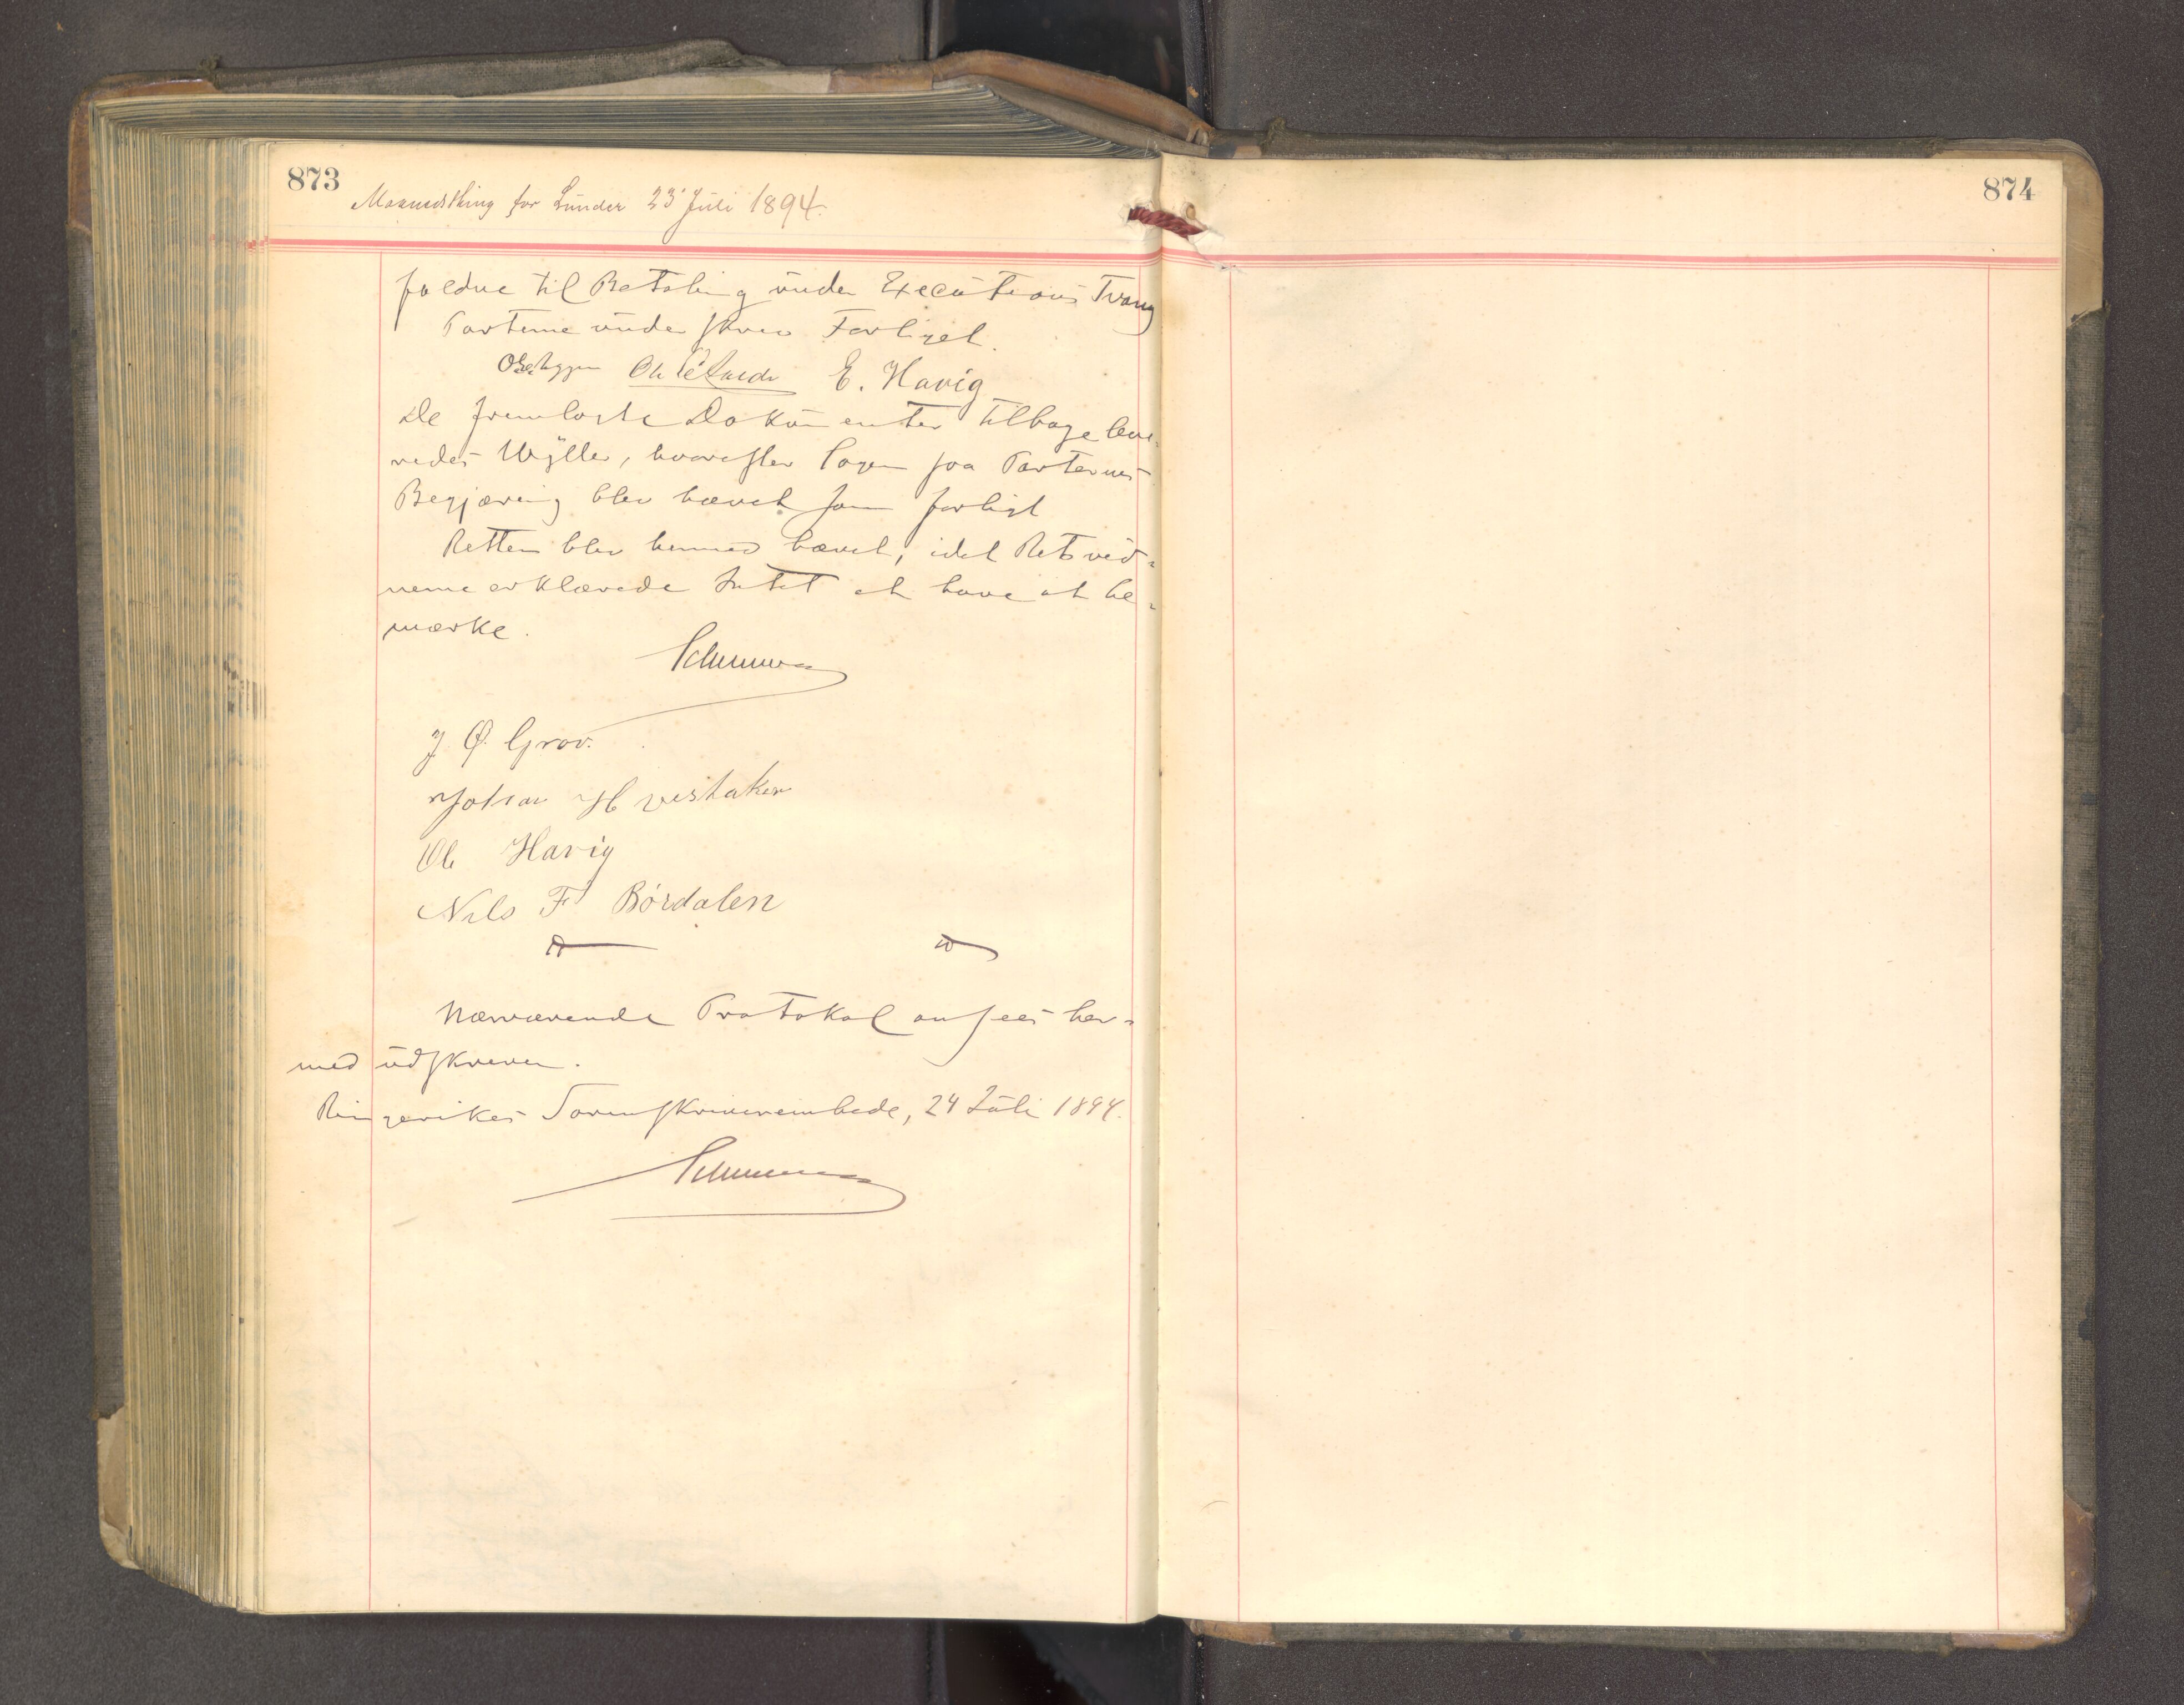 873
Maanedsthing for Lunder 23' Juli 1894.
874
faldne til Betaling under Executions Tvang
Parterne underskrev Forliget.
E. Havig
De fremlagte Dokumenter tilbageleve-
redes Wyller, hvorefter Sagen paa Parternes
Begjæring blev hævet som forligt
Retten blev hermed hævet, idet Retsvid-
nerne erklærede Intet at have at be-
mærke.
J. Ø. Grov.
Johan H
Ole Havig
Nils F Børdalen
Nærværende Protokol ansees her-
med udskreven.
Ringerikes Sorenskriverembede, 24 Juli 1894.